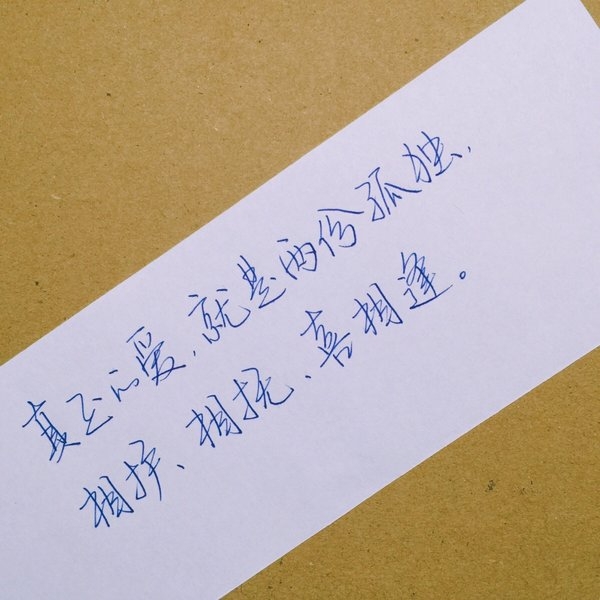 真正的爱,就是两份孤独,
相护、相抚、喜相逢。